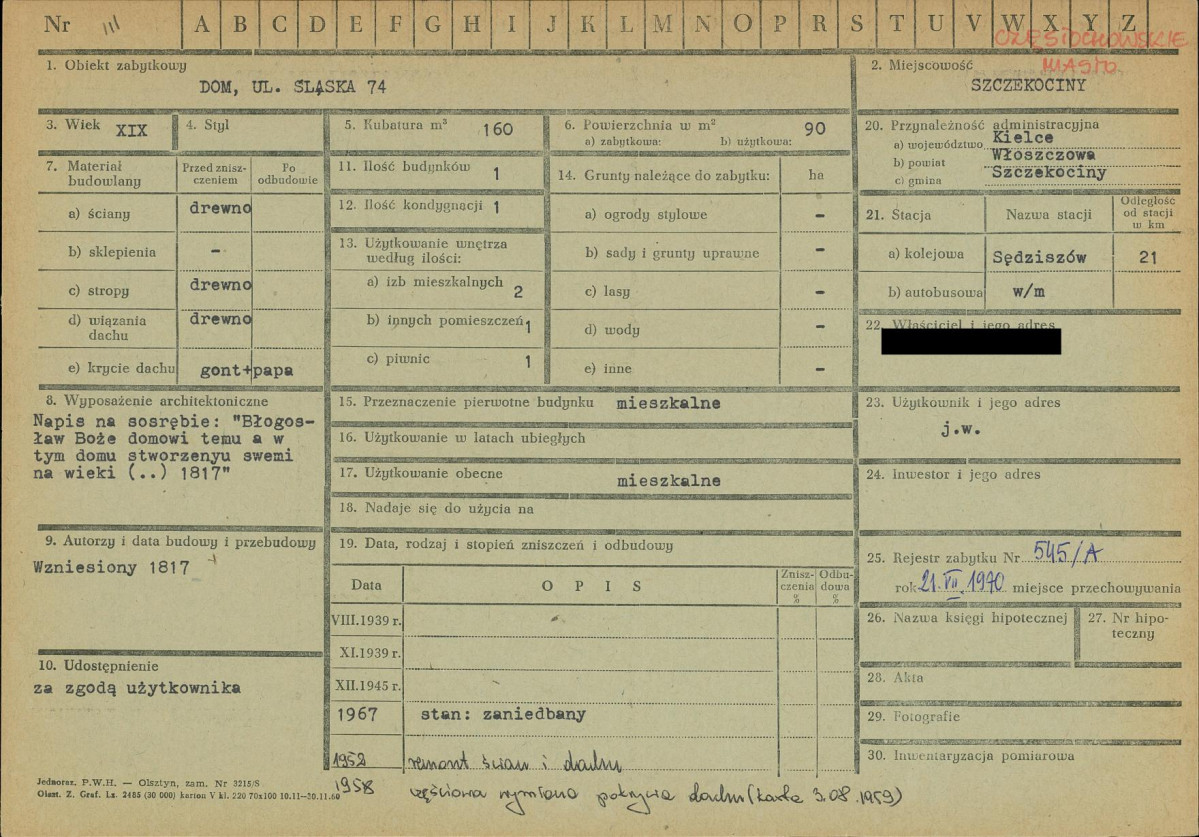 Nr III A B C D E F G H I J K L M N O P R S T U V W X Y Z
CZĘSTOCHOWSKIE
MIASTO
1. Obiekt zabytkowy
DOM, UL. SLĄSKA 74
2. Miejscowość
SZCZEKOCINY
3. Wiek XIX
4. Styl
5. Kubatura m³ 160
6. Powierzchnia w m² 90
a) zabytkowa: b) użytkowa:
7. Materiał budowlany
Przed zniszczeniem
Po odbudowie
a) ściany drewno
b) sklepienia -
c) stropy drewno
d) wiązania dachu drewno
e) krycie dachu gont+papa
8. Wyposażenie architektoniczne
Napis na sosrębie: "Błogos-
ław Boże domowi temu a w
tym domu stworzenyu swemi
na wieki (..) 1817"
9. Autorzy i data budowy i przebudowy
Wzniesiony 1817
10. Udostępnienie
za zgodą użytkownika
11. Ilość budynków 1
12. Ilość kondygnacji 1
13. Użytkowanie wnętrza
według ilości:
a) izb mieszkalnych 2
b) innych pomieszczeń 1
c) piwnic 1
14. Grunty należące do zabytku: ha
a) ogrody stylowe -
b) sady i grunty uprawne -
c) lasy -
d) wody -
e) inne -
15. Przeznaczenie pierwotne budynku mieszkalne
16. Użytkowanie w latach ubiegłych
17. Użytkowanie obecne mieszkalne
18. Nadaje się do użycia na
19. Data, rodzaj i stopień zniszczeń i odbudowy
Data OPIS Znisz-
czenia
% Odbu-
dowa
%
VIII.1939 r.
XI.1939 r.
XII.1945 r.
1967 stan: zaniedbany
1952 remont ścian i dachu
1958 częściowa wymiana pokrycia dachu (karta 3.08.1959)
20. Przynależność administracyjna
a) województwo Kielce
b) powiat Włoszczowa
c) gmina Szczekociny
21. Stacja Nazwa stacji Odległość
od stacji
w km
a) kolejowa Sędziszów 21
b) autobusowa w/m
22. Właściciel i jego adres
23. Użytkownik i jego adres
j.w.
24. Inwestor i jego adres
25. Rejestr zabytku Nr 545/A
rok 21.VII.1970 miejsce przechowywania
26. Nazwa księgi hipotecznej
27. Nr hipo-
teczny
28. Akta
29. Fotografie
30. Inwentaryzacja pomiarowa
Jednoraz. P.W.H. — Olsztyn, zam. Nr 3215/S
Olszt. Z. Graf. Lz. 2485 (30 000) karton V kl. 220 70x100 10.11—30.11.60